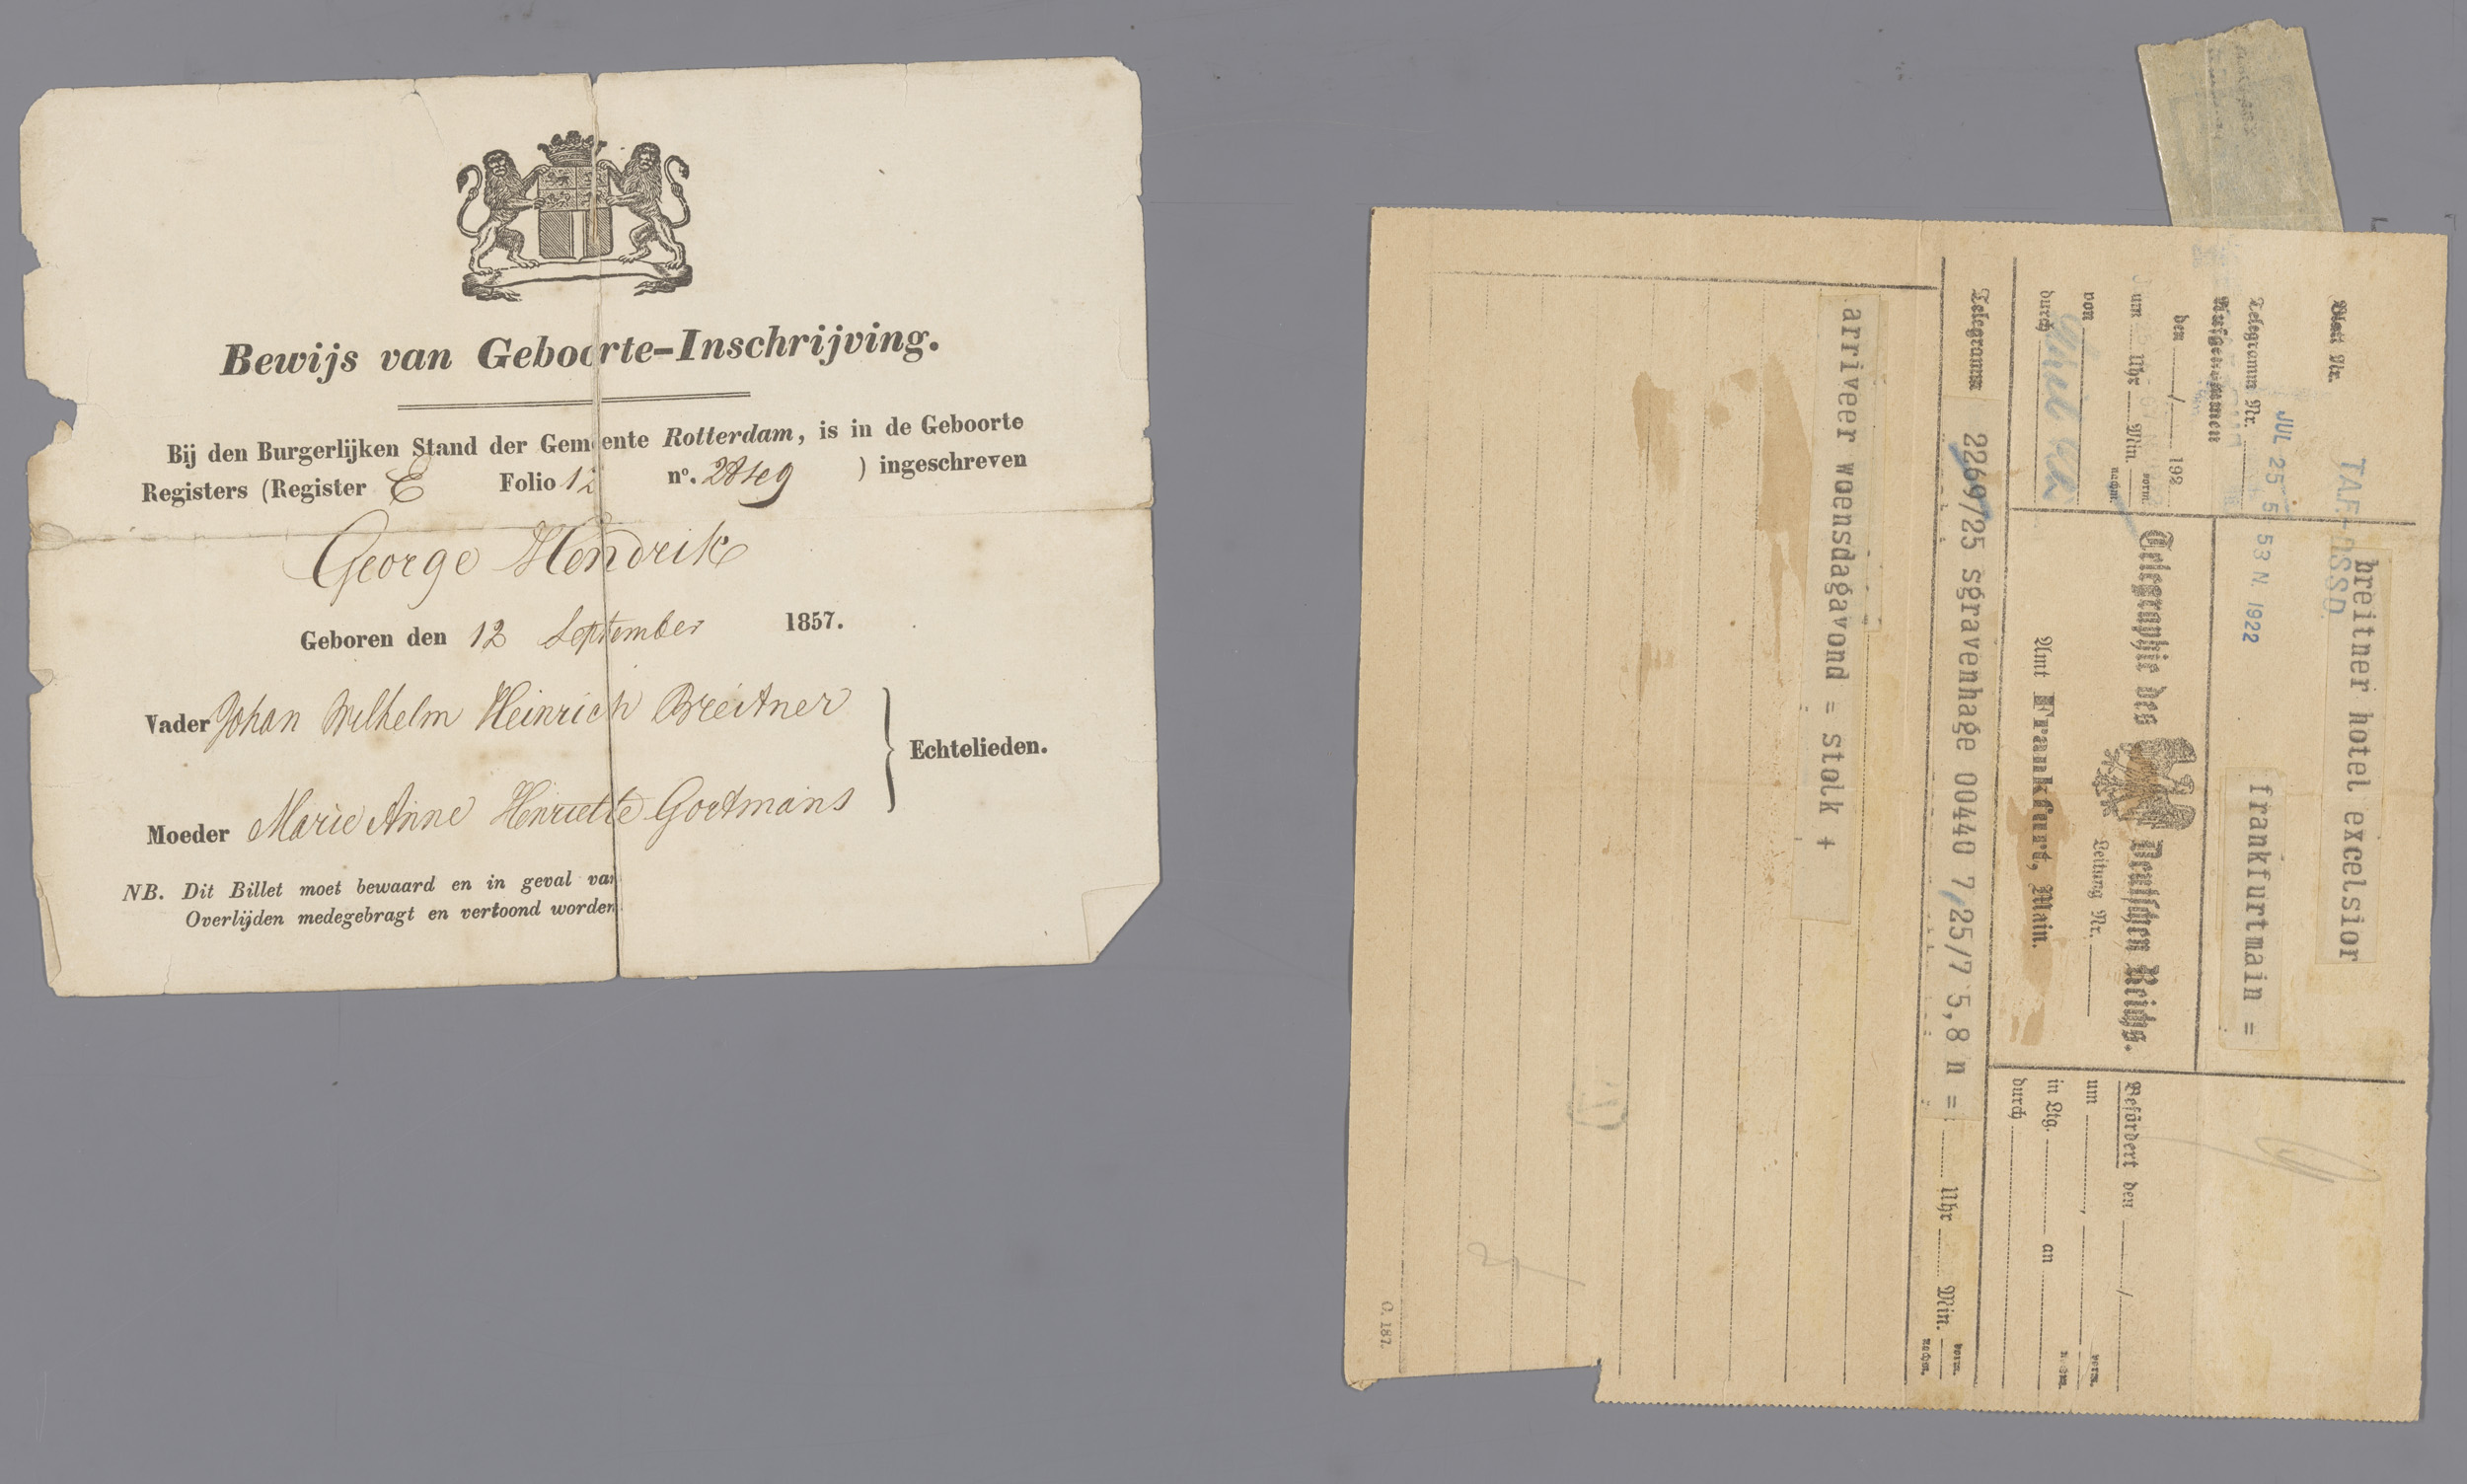 Bewijs van Geboorte-Inschrijving.
Bij den Burgerlijken Stand der Gemeente Rotterdam, is in de Geboorte
Registers (Register E Folio 12 nº. ) ingeschreven
George Hendrik
Geboren den 12 September 1857.
Vader Johan Wilhelm Heinrich Breitner
Echtelieden.
Moeder Marie Anne Henriette Gortmans
NB. Dit Billet moet bewaard en in geval van
Overlijden medegebragt en vertoond worden
breitner hotel excelsior
frankfurtmain =
Blatt Nr.
JUL 25 5 53 N. 1922
Telegramm Nr.
Aufgenommen
den / 192
um Uhr Min. vorm. nachm.
von
durch
Telegraphie des Deutschen Reichs.
Leitung Nr.
Amt Frankfurt, Main.
Befördert den /
um vorm. nachm.
in Ltg. an
durch
Telegramm 2269/25 sgravenhage 00440 7 25/7 5,8 n = Uhr Min. vorm. nachm.
arriveer woensdagavond = stolk +
C. 187.